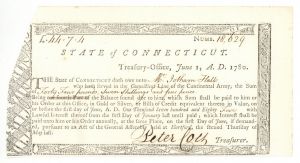 L. 44-7-4 NUMB. 18,629
STATE of CONNECTICUT.
Treasury-Office, June 1, A. D. 1780.
THE State of Connecticut doth owe unto Mr. Jotham Hall
who hath served in the Connecticut Line of the Continental Army, the Sum
of Forty Four pounds Seven Shillings and four pence
being Part of the Balance found due to him, which Sum shall be paid to him or
his Order at this Office, in Gold or Silver, or Bills of Credit equivalent thereto in Value, on
or before the first Day of June, A. D. One Thousand Seven hundred and Eighty
Lawful Interest thereof from the first Day of January last until paid; which Interest shall be
paid to him or his Order annually, at the State-Treasury, on the first Day of June, if
demanded, pursuant to an Act of the General Assembly held at Hartford, the second Thursday of
May last.
Treasurer.